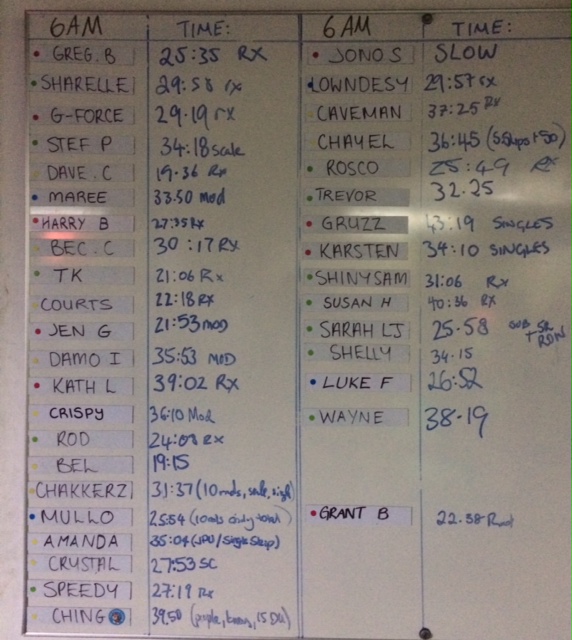 6AM TIME:
GREG.B 25:35 RX
SHARELLE 29:58 rx
G-FORCE 29.19 rx
STEF P 34:18 scale
DAVE.C 19.36 Rx
MAREE 33.50 mod
HARRY B 27:35 Rx
BEC.C 30:17 RX
TK 21:06 Rx
COURTS 22:18 RX
JEN G 21:53 MOD
DAMO I 35:53 MOD
KATH L 39:02 RX
CRISPY 36:10 Mod
ROD 24:08 RX
BEL 19:15
CHAKKERZ 31:37 (10 rnds, scale,
MULLO 25:54 (10 rnds only
AMANDA 35:04 (JPU/Single Skip)
CRYSTAL 27:53 SC
SPEEDY 27:19 Rx
CHING 39.50 (purple, 15 DU)
6AM TIME:
JONO S SLOW
LOWNDESY 29:57 rx
CAVEMAN 37:25 RX
CHAYEL 36:45
ROSCO 25:49 RX
TREVOR 32.25
GRUZZ 43:19 SINGLES
KARSTEN 34:10 SINGLES
SHINYSAM 31:06 Rx
SUSAN H 40:36 RX
SARAH LJ 25.58
SHELLY 34.15
LUKE F 26:52
WAYNE 38.19
GRANT B 22.38